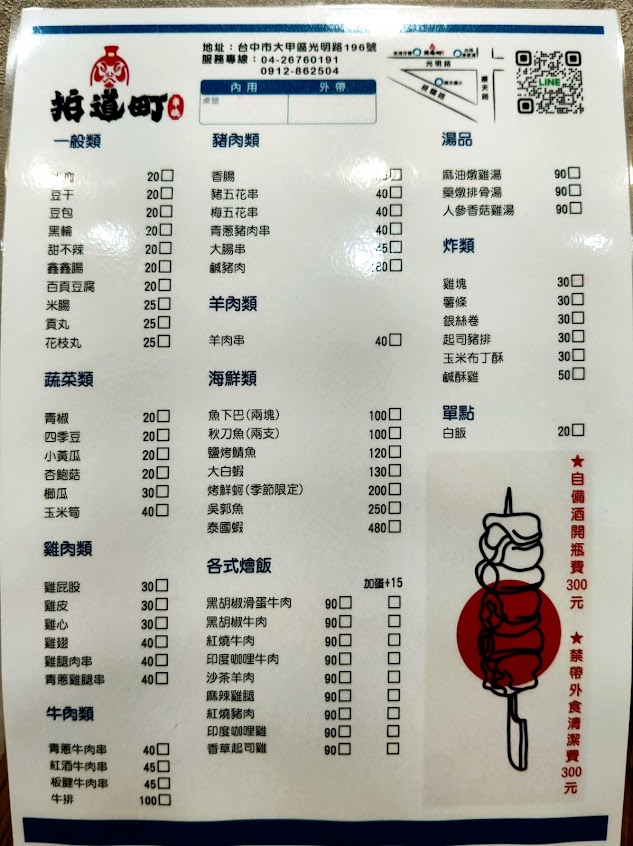 地址：台中市大甲區光明路196號
服務專線：04-26760191
0912-862504
拍道町
內用 外帶
桌號
光明路
經國路
順天路
LINE
一般類
20
豆干 20
豆包 20
黑輪 20
甜不辣 20
鑫鑫腸 20
百頁豆腐 20
米腸 25
貢丸 25
花枝丸 25
蔬菜類
青椒 20
四季豆 20
小黃瓜 20
杏鮑菇 20
櫛瓜 30
玉米筍 40
雞肉類
雞屁股 30
雞皮 30
雞心 30
雞翅 40
雞腿肉串 40
青蔥雞腿串 40
牛肉類
青蔥牛肉串 40
紅酒牛肉串 45
板腱牛肉串 45
牛排 100
豬肉類
香腸
豬五花串 40
梅五花串 40
青蔥豬肉串 40
大腸串 45
鹹豬肉
羊肉類
羊肉串 40
海鮮類
魚下巴(兩塊) 100
秋刀魚(兩支) 100
鹽烤鯖魚 120
大白蝦 130
烤鮮蚵(季節限定) 200
吳郭魚 250
泰國蝦 480
各式燴飯
加蛋+15
黑胡椒滑蛋牛肉 90
黑胡椒牛肉 90
紅燒牛肉 90
印度咖哩牛肉 90
沙茶羊肉 90
麻辣雞腿 90
紅燒豬肉 90
印度咖哩雞 90
香草起司雞 90
湯品
麻油燉雞湯 90
藥燉排骨湯 90
人參香菇雞湯 90
炸類
雞塊 30
薯條 30
銀絲卷 30
起司豬排 30
玉米布丁酥 30
鹹酥雞 50
單點
白飯 20
★自備酒開瓶費300元
★禁帶外食清潔費300元